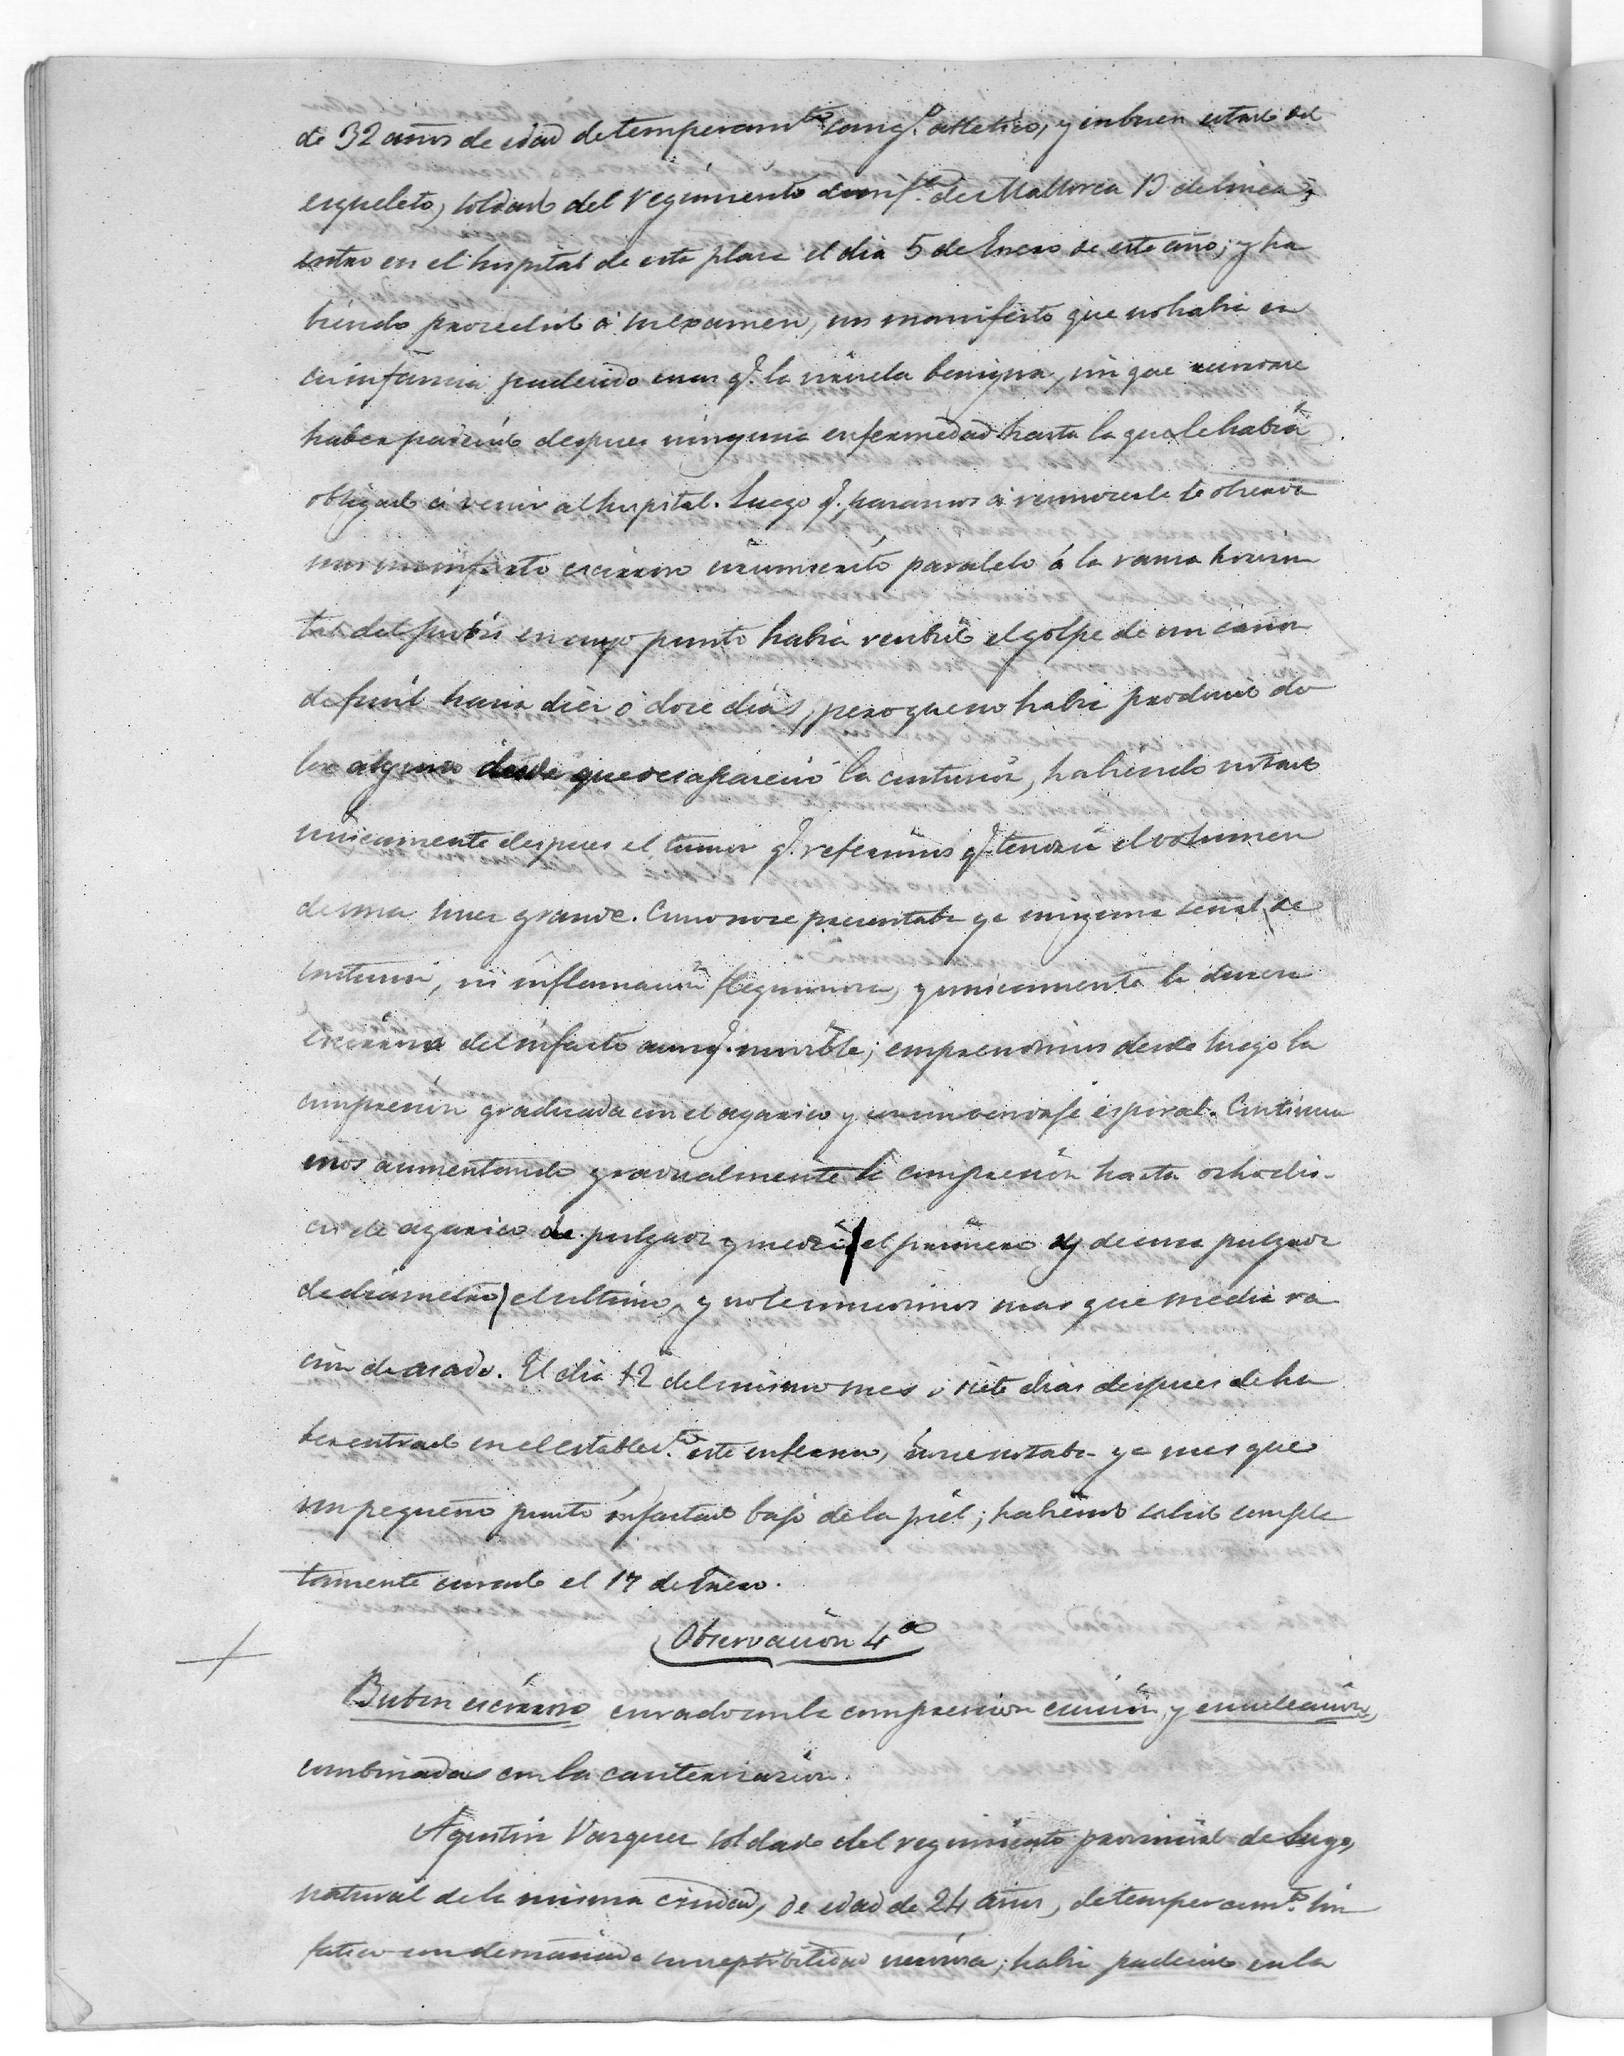 de 32 años de edad de temperam.to sang.o atletico, y en buen estado del
esqueleto, soldado del regimiento de inf.a de Mallorca 13 de linea;
entro en el hospital de esta plaza el dia 5 de Enero de este año; y ha
biendo procedido á su examen, nos manifesto que no habia en
su infancia padecido mas q.e la viruela benigna, sin que
haber padecido despues ninguna enfermedad hasta la que le habia
obligado á venir al hospital. Luego q.e pasamos á reconocerle se observa
un infarto escirroso circunscrito paralelo á la rama horizon
tal del pubis en cuyo punto habia recibido el golpe de un cañon
de fusil hacia diez o doce dias, pero que no habia producido do
lor alguno desde que desapareció la contusion, habiendo notado
unicamente despues el tumor q.e referimos q.e tendria el volumen
de una nuez grande. Como no se presentaba ya ninguna señal de
contusion, ni inflamacion flegmonosa, y unicamente la dureza
escirrosa del infarto aunq.e movible; emprendimos desde luego la
compresion graduada con el agarico y con un vendaje espiral. Continua
mos aumentando gradualmente la compresion hasta ocho dis-
cos de agarico de pulgada y media el primero y de una pulgada
de diametro el ultimo, y no le concedimos mas que media ra
cion de asado. El dia 12 del mismo mes o siete dias despues de ha
ber entrado en el establec.to este enfermo, no se notaba ya mas que
un pequeño punto infartado bajo de la piel; habiendo salido comple
tamente curado el 17 de Enero.
Observacion 4.a
Bubon escirroso curado con la compresion escision y enucleacion,
combinadas con la cauterizacion.
Agustin Vazquez soldado del regimiento provincial de Lugo,
natural de la misma ciudad, de edad de 24 años, de temperam.to lin
fatico con demasiada susceptibilidad nerviosa; habia padecido en la